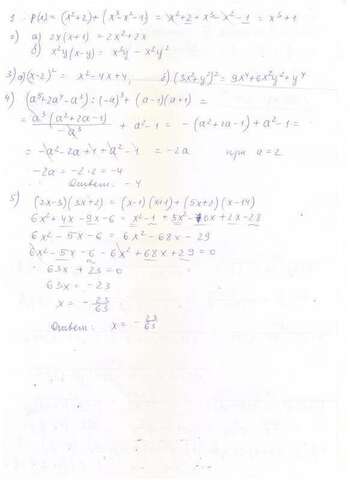 1. P(x) = (x²+2) + (x³-x²-1) = x²+2+x³-x²-1 = x³+1
2) а) 2x(x+1) = 2x²+2x
б) x²y(x-y) = x³y - x²y²
3) а) (x-2)² = x²-4x+4, б) (3x²+y²)² = 9x⁴+6x²y²+y⁴
4) (a⁵+2a⁴-a³) : (-a)³ + (a-1)(a+1) =
= a³(a²+2a-1) / -a³ + a²-1 = -(a²+2a-1)+a²-1 =
= -a²-2a+1+a²-1 = -2a при a=2
-2a = -2·2 = -4
Ответ: -4
5) (2x-3)(3x+2) = (x-1)(x+1)+(5x+2)(x-14)
6x²+4x-9x-6 = x²-1+5x²-70x+2x-28
6x²-5x-6 = 6x²-68x-29
6x²-5x-6-6x²+68x+29=0
63x+23=0
63x=-23
x = -23/63
Ответ: x = -23/63